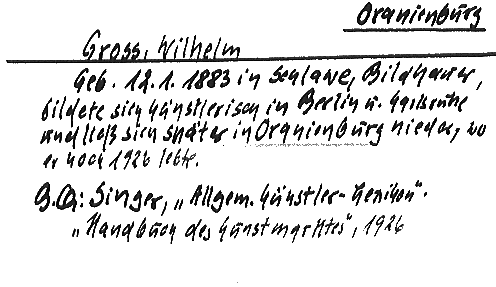 Oranienburg
Gross, Wilhelm
Geb. 12.1.1883 in Schlawe, Bildhauer,
bildete sich künstlerisch in Berlin u. Karlsruhe
und ließ sich später in Oranienburg nieder, wo
er noch 1926 lebte.
B.Q: Singer, „Allgem. Künstler-Lexikon".
„Handbuch des Kunstmarktes", 1926